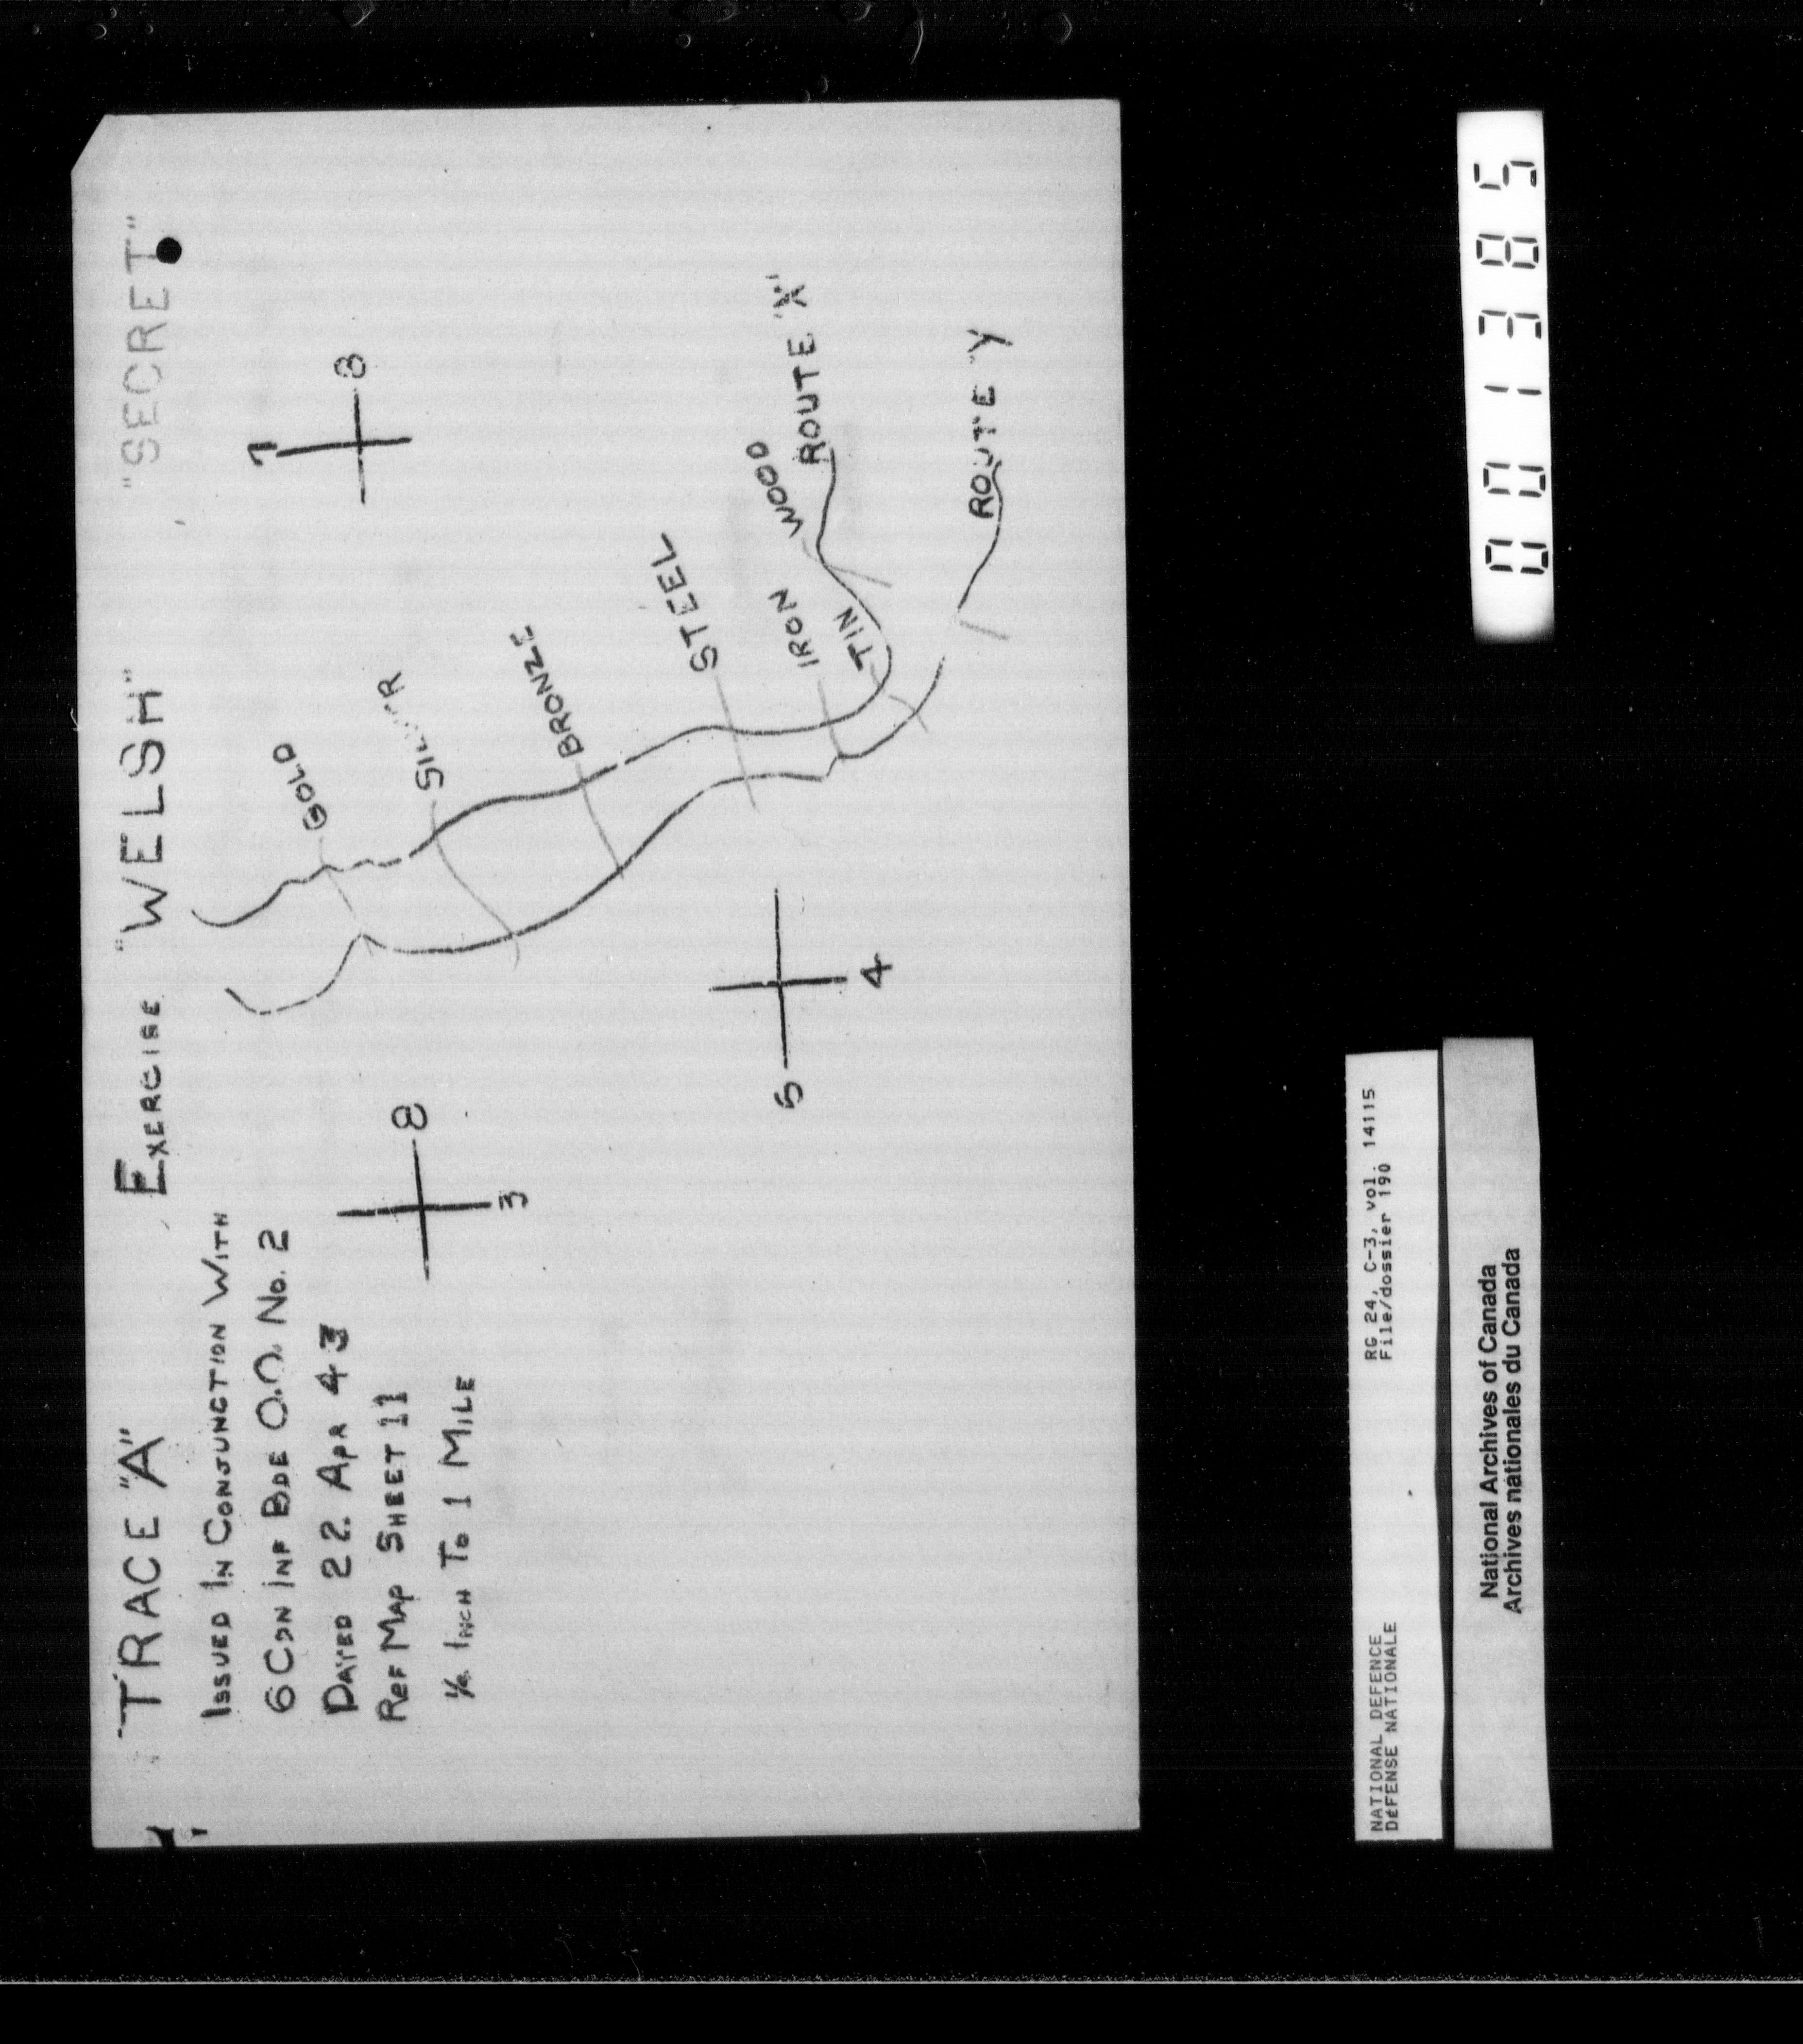 "TRACE "A"    EXERCISE "WELSH"    "SECRET"
ISSUED IN CONJUNCTION WITH
6 CDN INF BDE O.O. No. 2
DATED 22. APR 43
REF MAP SHEET 11
1/4 INCH TO 1 MILE
7
8
8
3
6
4
GOLD
SILVER
BRONZE
STEEL
IRON
WOOD
TIN
ROUTE "X"
ROUTE "Y
NATIONAL DEFENCE    RG 24, C-3, vol. 14115
DéFENSE NATIONALE    File/dossier 190
National Archives of Canada
Archives nationales du Canada
001385